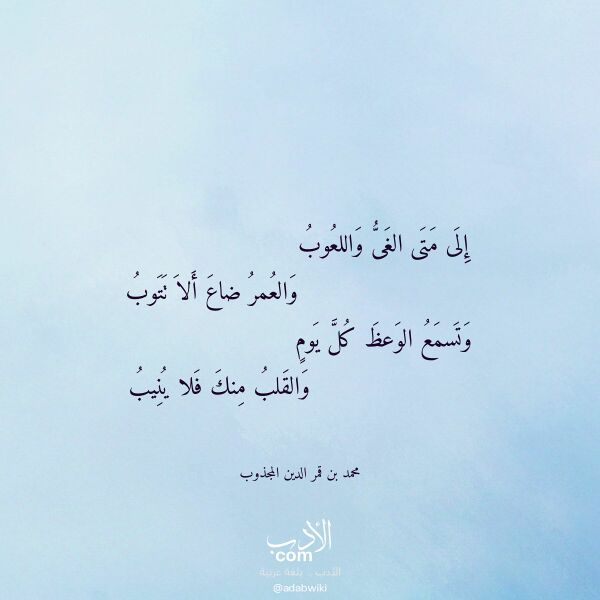 إِلَى مَتَى الغَىُّ وَاللعُوبُ
وَالعُمرُ ضاعَ أَلاَ تَتَوبُ
وَتَسمَعُ الوَعظَ كُلَّ يَومٍ
وَالقَلبُ مِنكَ فَلا يُنِيبُ
محمد بن قمر الدين المجذوب
الأدب
com
الأدب .. بلغة عربية
@adabwiki